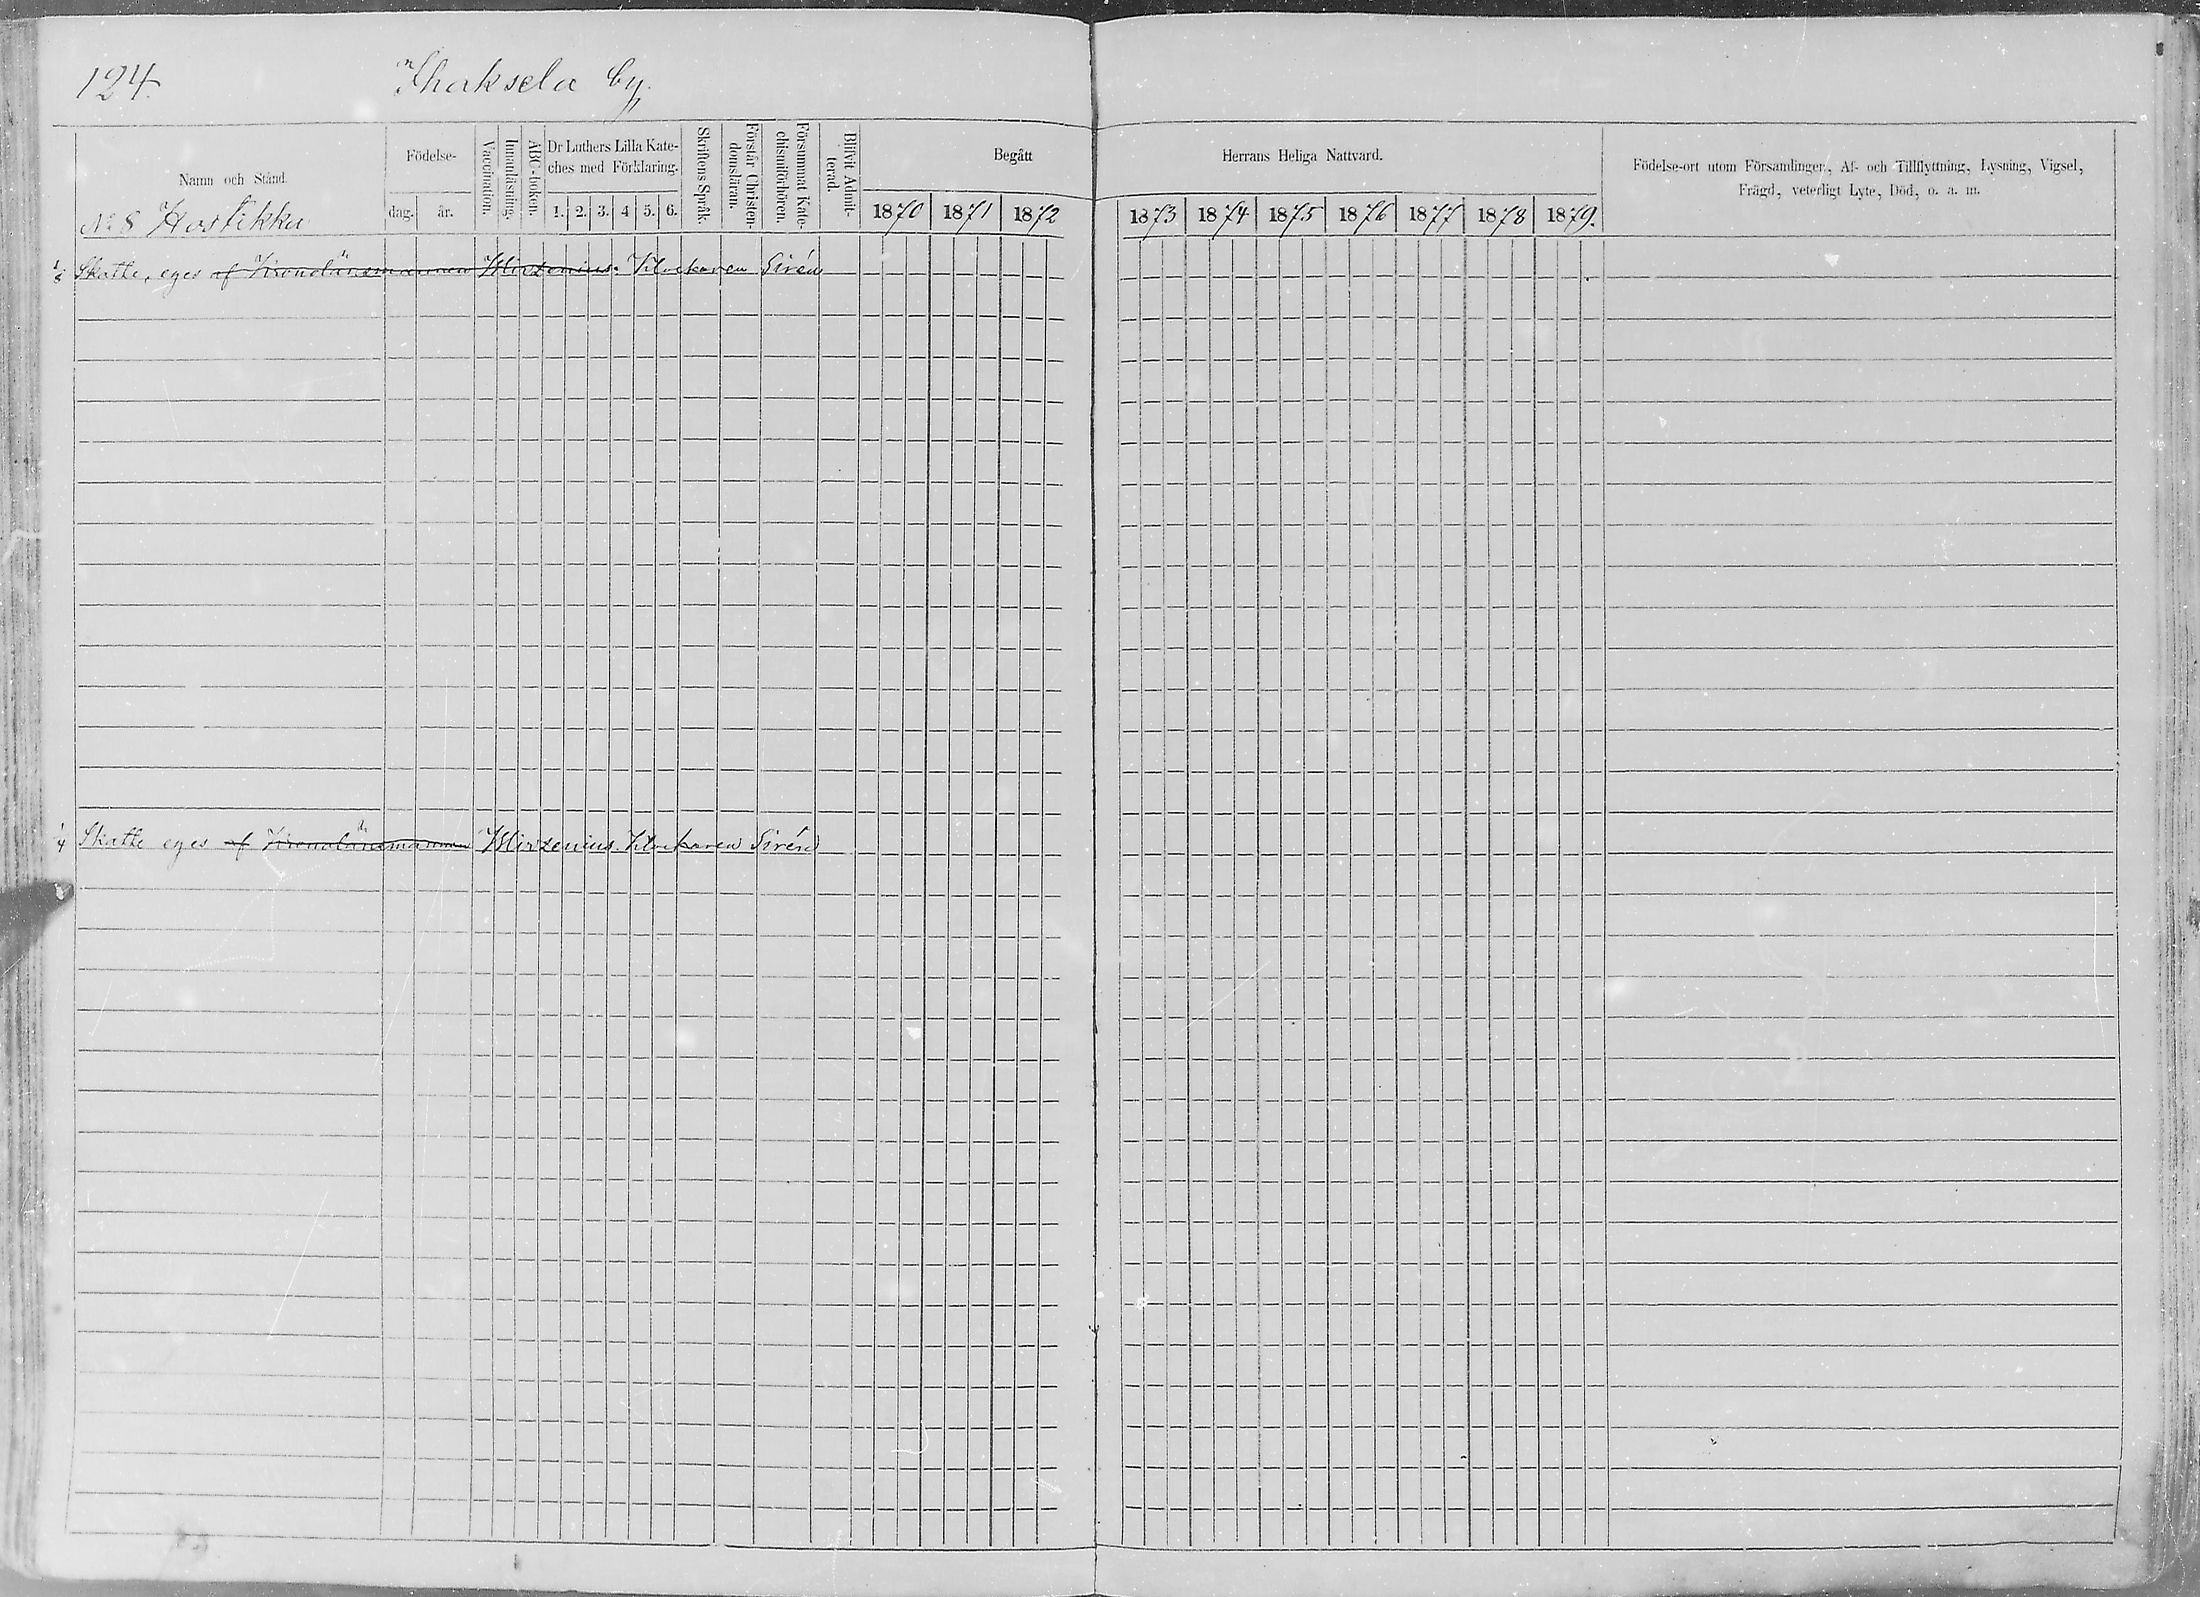 124.
Ihaksela by.
Namn och Stånd.
Födelse-
dag. år.
Vaccination.
Innanläsning.
ABC-boken.
Dr Luthers Lilla Kate-
ches med Förklaring.
1. 2. 3. 4 5. 6.
Skriftens Språk.
Förstår Christen-
domsläran.
Försummat Kate-
chismiförhören.
Blifvit Admit-
terad.
Begått
1870 1871 1872
Herrans Heliga Nattvard.
1873 1874 1875 1876 1877 1878 1879.
Födelse-ort utom Församlingen, Af- och Tillflyttning, Lysning, Vigsel,
Frägd, veterligt Lyte, Död, o. a. m.
№ 8 Hostikka
Skatte, eges af Kronolänsmannen Wirzenius. Klockaren Sirén
1/4 Skatte eges af Kronolänsmannen Wirzenius. Klockaren Sirén